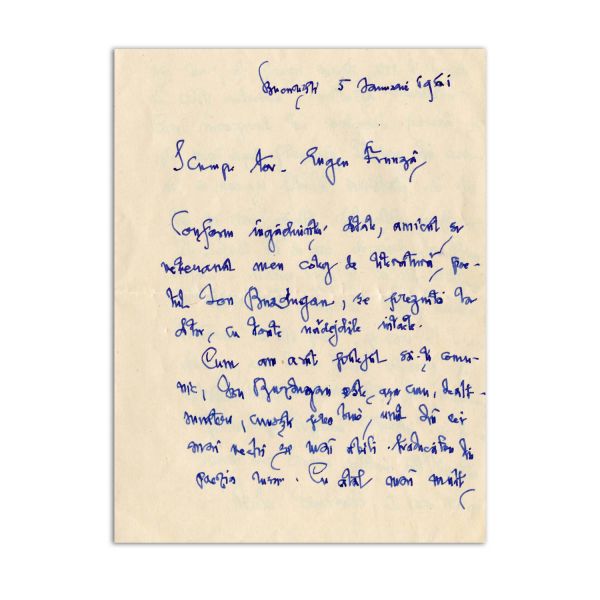 București 5 Ianuarie 1951
Scumpe tov. Eugen Frunză,
Conform îngăduinței date, amicul și
veteranul meu coleg de literatură, poe-
tul Ion Buzdugan, se prezintă la
dtor, cu toate nădejdile intacte.
Cum am avut prilejul să-ți comu-
nic, Ion Buzdugan este, așa cum, de alt-
minteri, cunoști prea bine, unul din cei
mai vechi și mai abili traducători din
poezia rusă. Cu atât mai mult,